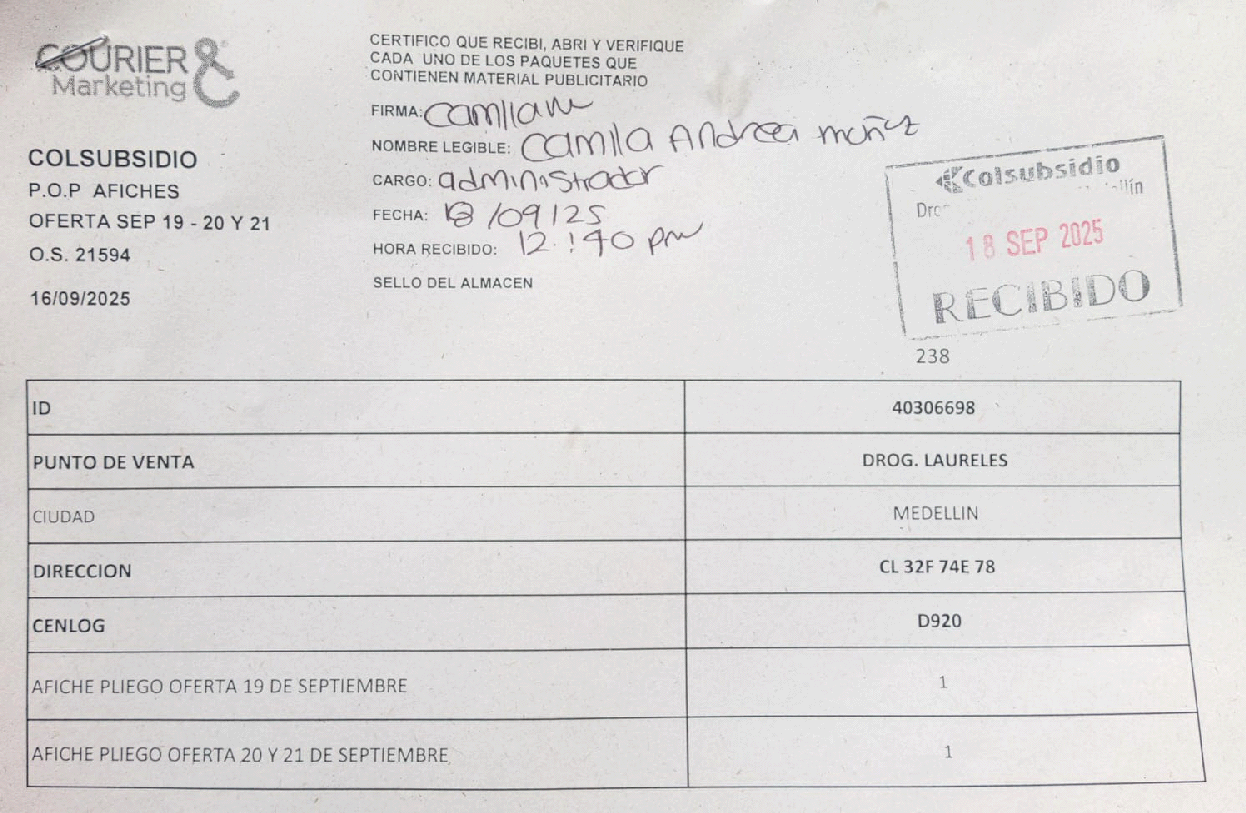 COURIER &
Marketing
COLSUBSIDIO
P.O.P AFICHES
OFERTA SEP 19 - 20 Y 21
O.S. 21594
16/09/2025
CERTIFICO QUE RECIBI, ABRI Y VERIFIQUE
CADA UNO DE LOS PAQUETES QUE
CONTIENEN MATERIAL PUBLICITARIO
FIRMA:
NOMBRE LEGIBLE: Camila Andrea muñoz
CARGO: administrador
FECHA: 18/09/25
HORA RECIBIDO: 12:40 pm
SELLO DEL ALMACEN
Colsubsidio
18 SEP 2025
RECIBIDO
238
ID 40306698
PUNTO DE VENTA DROG. LAURELES
CIUDAD MEDELLIN
DIRECCION CL 32F 74E 78
CENLOG D920
AFICHE PLIEGO OFERTA 19 DE SEPTIEMBRE 1
AFICHE PLIEGO OFERTA 20 Y 21 DE SEPTIEMBRE 1